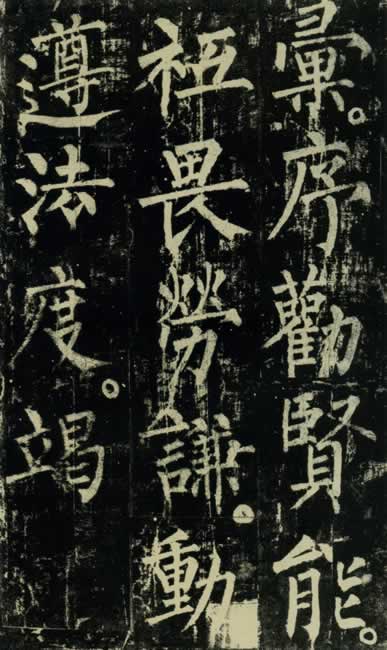 彙。序勸賢能。
祗畏勞謙。動
遵法度。竭